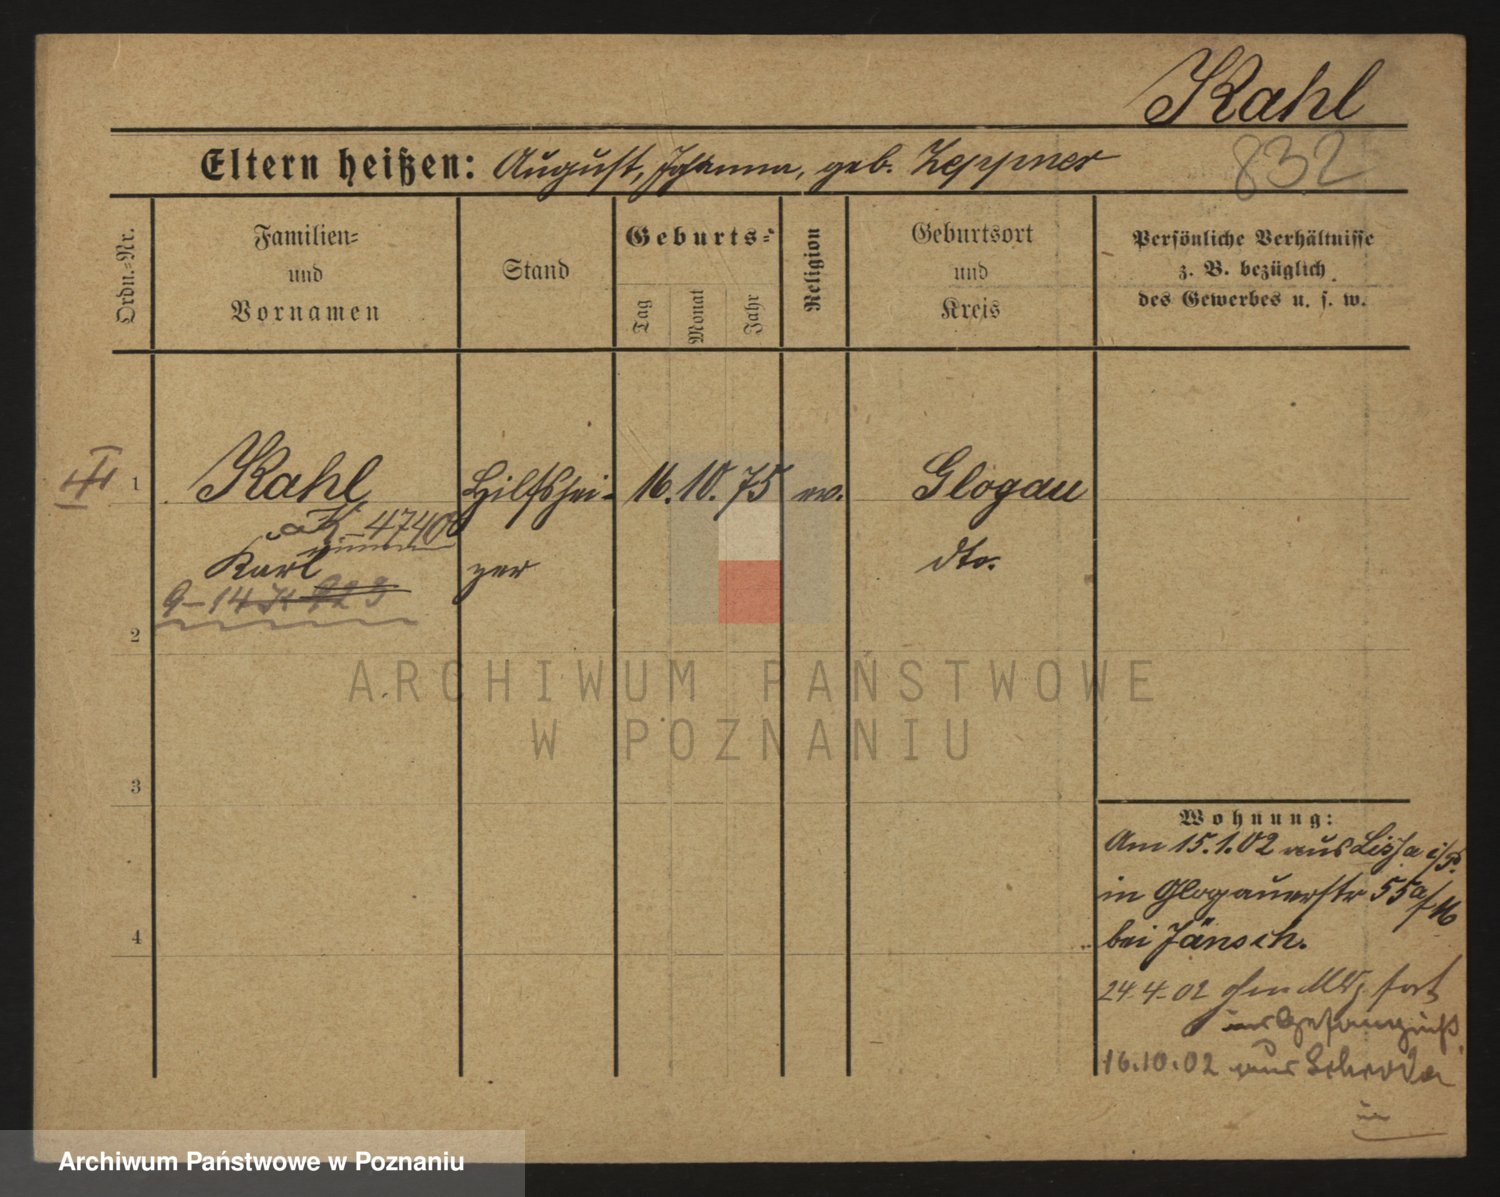 Kahl
832
Eltern heißen: August, Johanna, geb. Zeppner
Ordn.-Nr.
Familien-
und
Vornamen
Stand
Geburts-
Tag
Monat
Jahr
Religion
Geburtsort
und
Kreis
Persönliche Verhältnisse
z. B. bezüglich
des Gewerbes u. s. w.
1 Kahl Hilfshei- 16. 10. 75 ev. Glogau
4740
Karl zer dto.
9-14
2
3
4
Wohnung:
Am 15.1.02 aus Lissa i/P.
in Glogauerstr 55a/16
bei Jänsch.
24.4.02 fort
ins Gefängniß
16.10.02 aus Schroda
in
ARCHIWUM PAŃSTWOWE
W POZNANIU
Archiwum Państwowe w Poznaniu